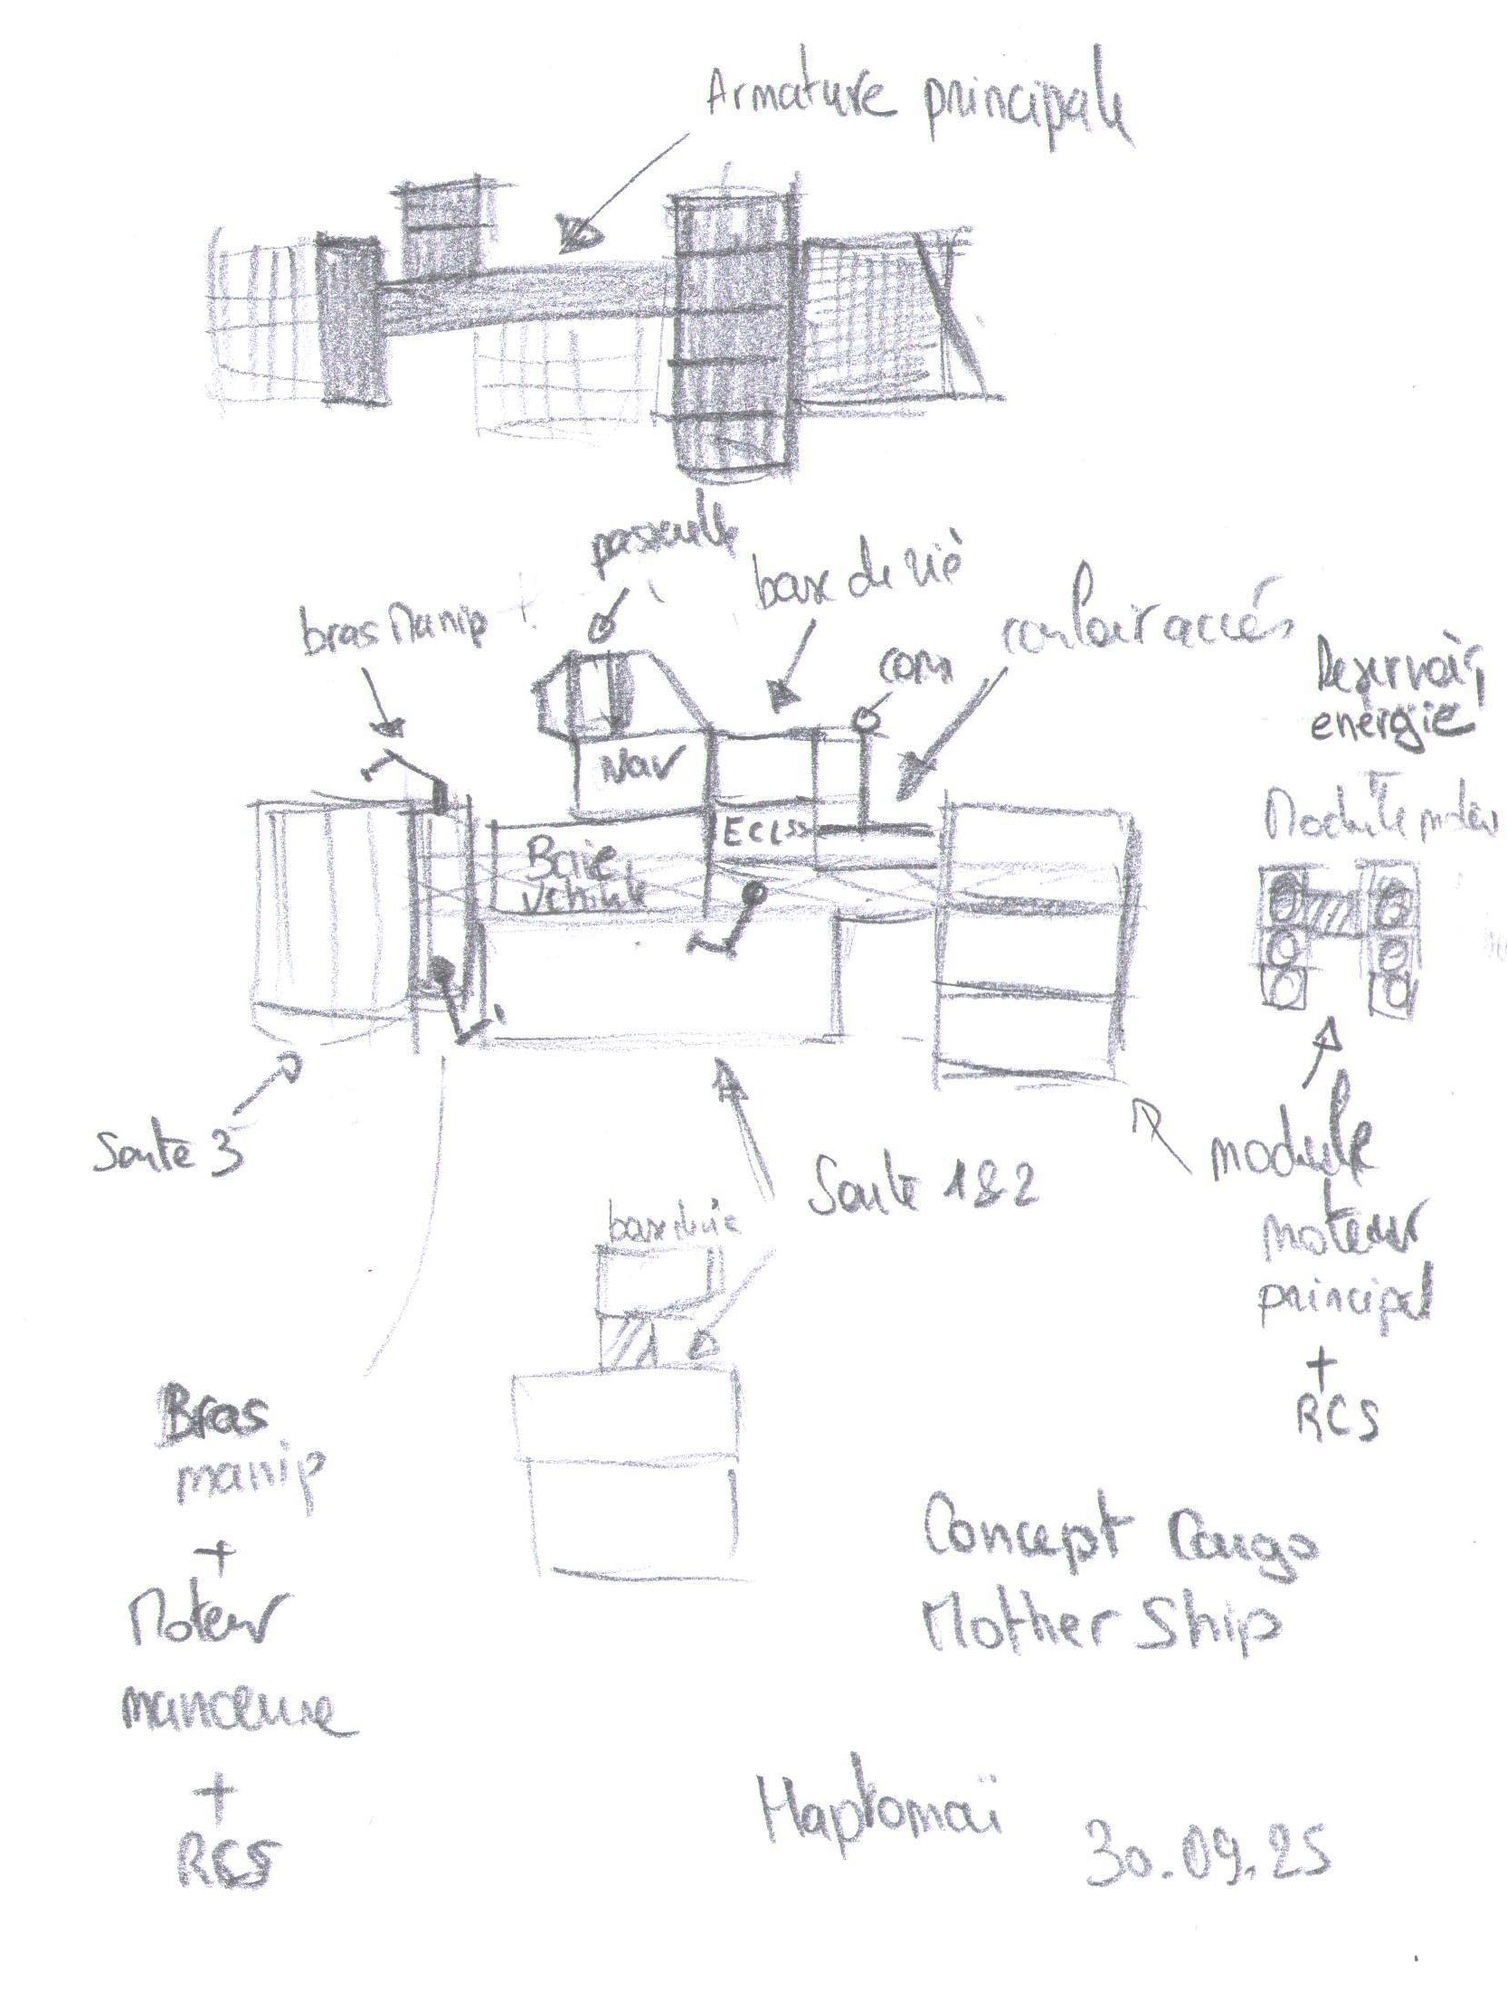 Armature principale
passerelle
base de vie
bras Manip
com
couloir accès
Reservoir
energie
+
Module moteur
Nav
ECLSS
Baie
vehicule
Soute 3
Soute 1&2
base de vie
module
moteur
principal
+
RCS
Bras
manip
+
Moteur
manoeuvre
+
RCS
Concept Cargo
Mother Ship
Haptomaï
30.09.25